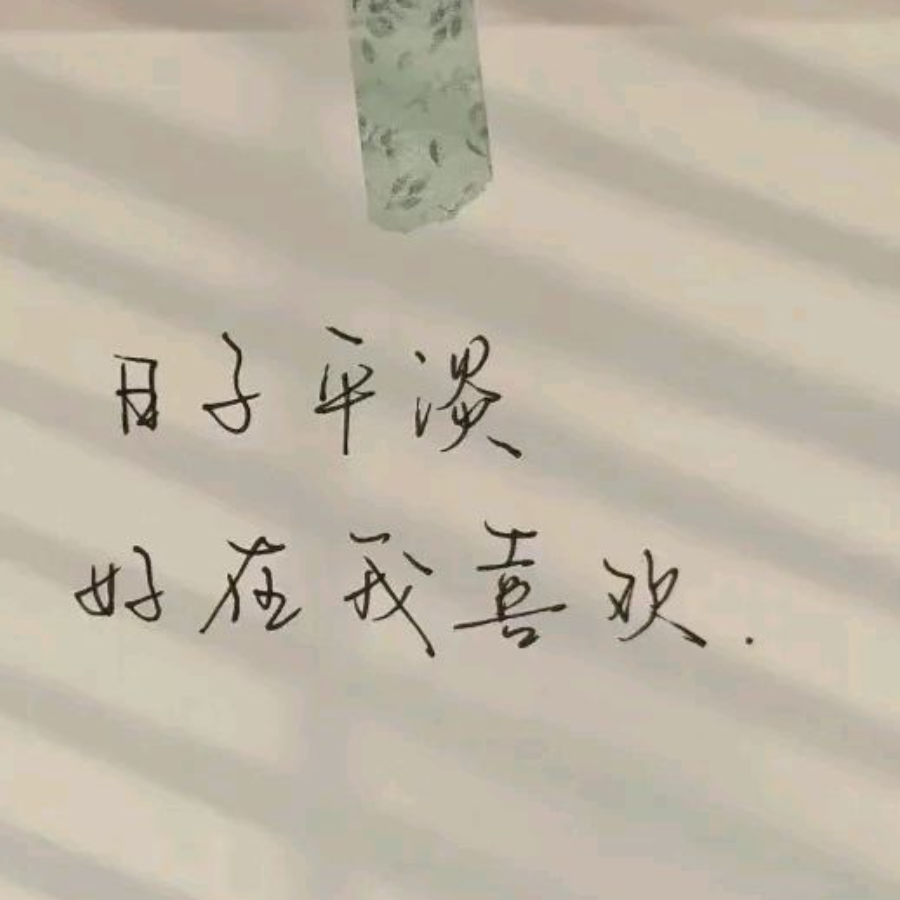 日子平淡
好在我喜欢.